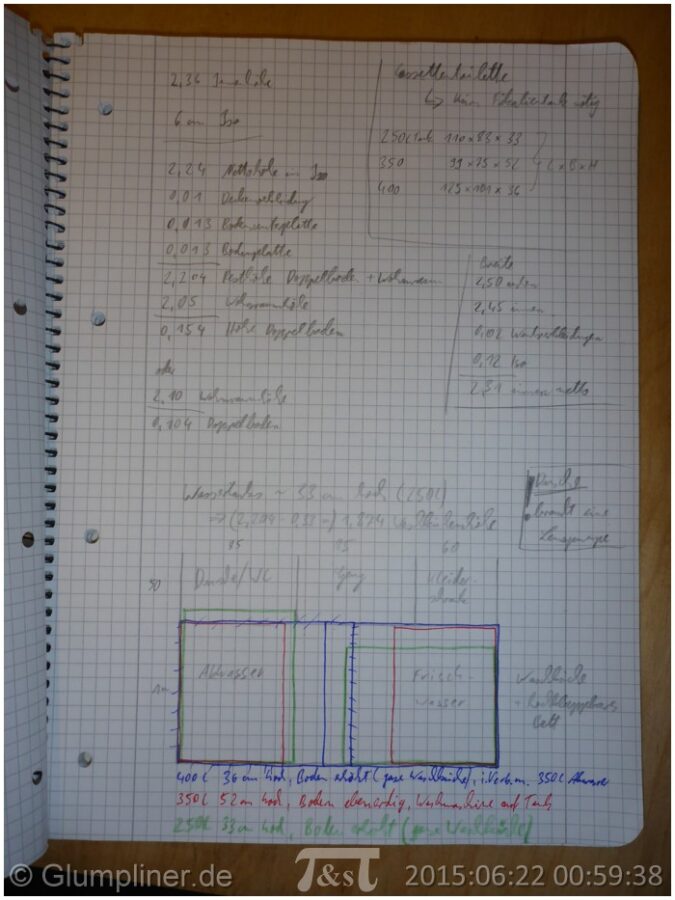 2,36 Innenhöhe
6 cm Iso
2,24 Nettohöhe m. Iso
0,01 Deckenverkleidung
0,013 Bodenunterplatte
0,013 Bodenplatte
2,204 Resthöhe Doppelboden + Wohnraum
2,05 Wohnraumhöhe
0,154 Höhe Doppelboden
oder
2,10 Wohnraumhöhe
0,104 Doppelboden
Cassettentoilette
↳ kein Fäkalientank nötig
250L Tank 110 x 83 x 33
350 99 x 75 x 52 L x B x H
400 125 x 101 x 36
Breite
2,50 außen
2,45 innen
0,02 Wandverkleidungen
0,12 Iso
2,31 innen netto
Wassertanks ~ 33 cm hoch (250L)
⇒ (2,204 - 0,33 =) 1,874
! Dusche
braucht eine
Lenzpumpe
95 95 60
50 Dusche/WC Gang Kleiderschrank
1m Abwasser Frischwasser
Waschküche
+ Hochklappbares
Bett
400L 36 cm hoch, Boden erhöht (ganze Waschküche), i.Verb.m. 350L Abwasser
350L 52 cm hoch, Boden ebenerdig, Waschmaschine auf Tank
250L 33 cm hoch, Boden erhöht (ganze Waschküche)
© Glumpliner.de T&sT 2015:06:22 00:59:38